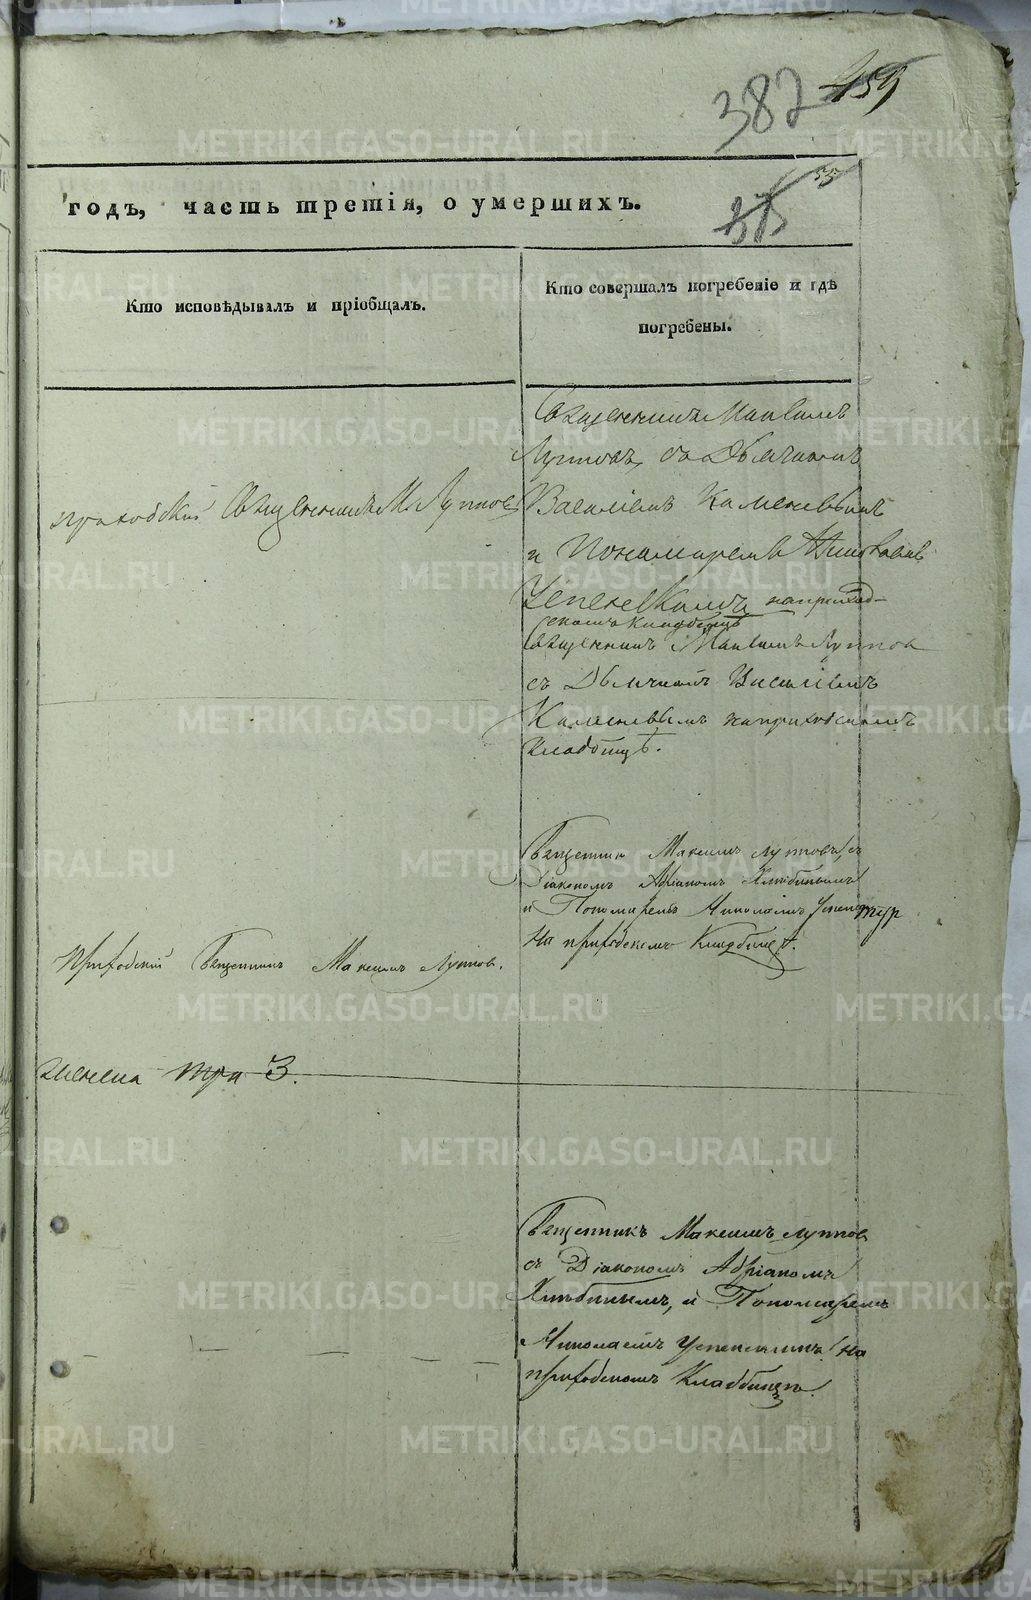 382 459
годъ, часть третія, о умершихъ.
Кто исповѣдывалъ и пріобщалъ.
Кто совершалъ погребеніе и гдѣ
погребены.
Священникъ Максимъ
Луппов съ Дьячкомъ
приходскій Священникъ М. Луппов
Василіемъ Каменевымъ
и Пономаремъ Николаемъ
Успенскимъ на приход-
скомъ кладбищѣ
Священникъ Максимъ Луппов
съ Дьячкомъ Василіемъ
Каменевымъ на приходскомъ
кладбищѣ.
Священник Максимъ Лупповъ, съ
Діакономъ Адріаномъ Хлѣбинымъ
и Пономаремъ Николаемъ
На приходскомъ Кладбищѣ.
Приходскій Священникъ Максимъ Луппов.
три 3.
Священникъ Максимъ Луппов
съ Діакономъ Адріаномъ
Хлѣбинымъ, и Пономаремъ
Николаемъ Успенскимъ на
приходскомъ Кладбищѣ.
METRIKI.GASO-URAL.RU